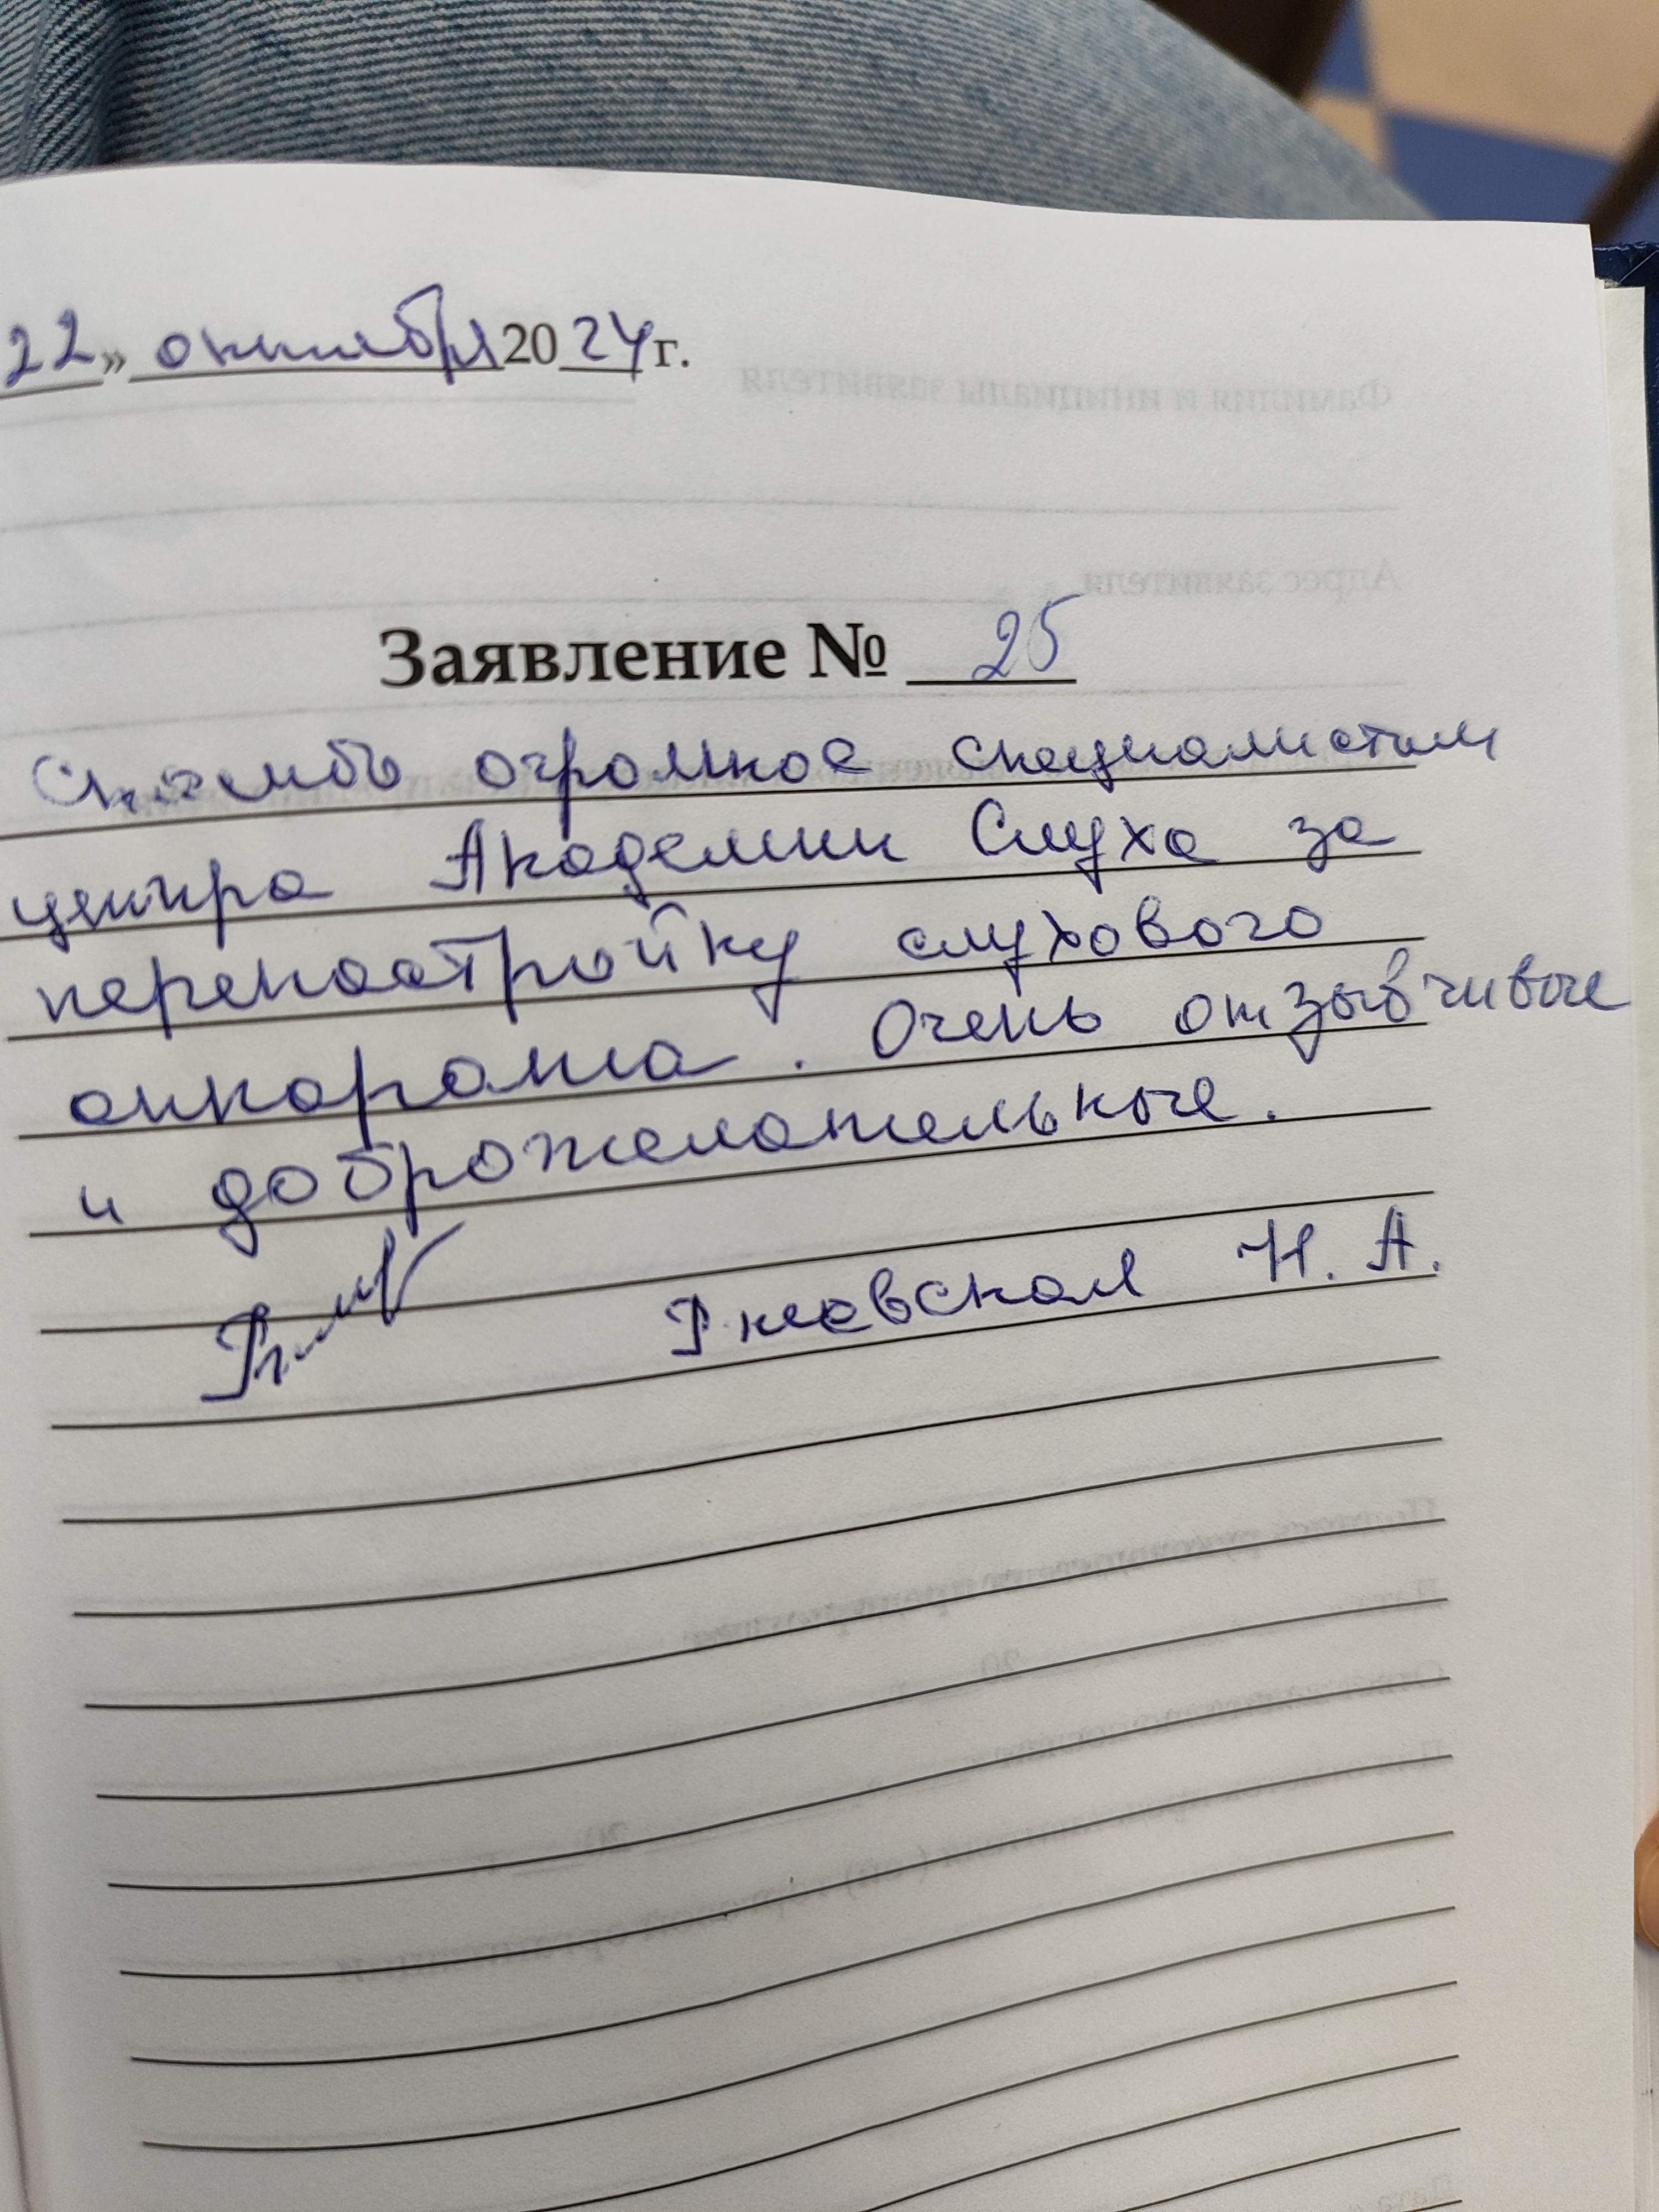 22» октября 2024 г.
Заявление № 25
Спасибо огромное специалистам
центра Академии Слуха за
перенастройку слухового
аппарата. Очень отзывчивые
и доброжелательные.
Ржевская Н. А.